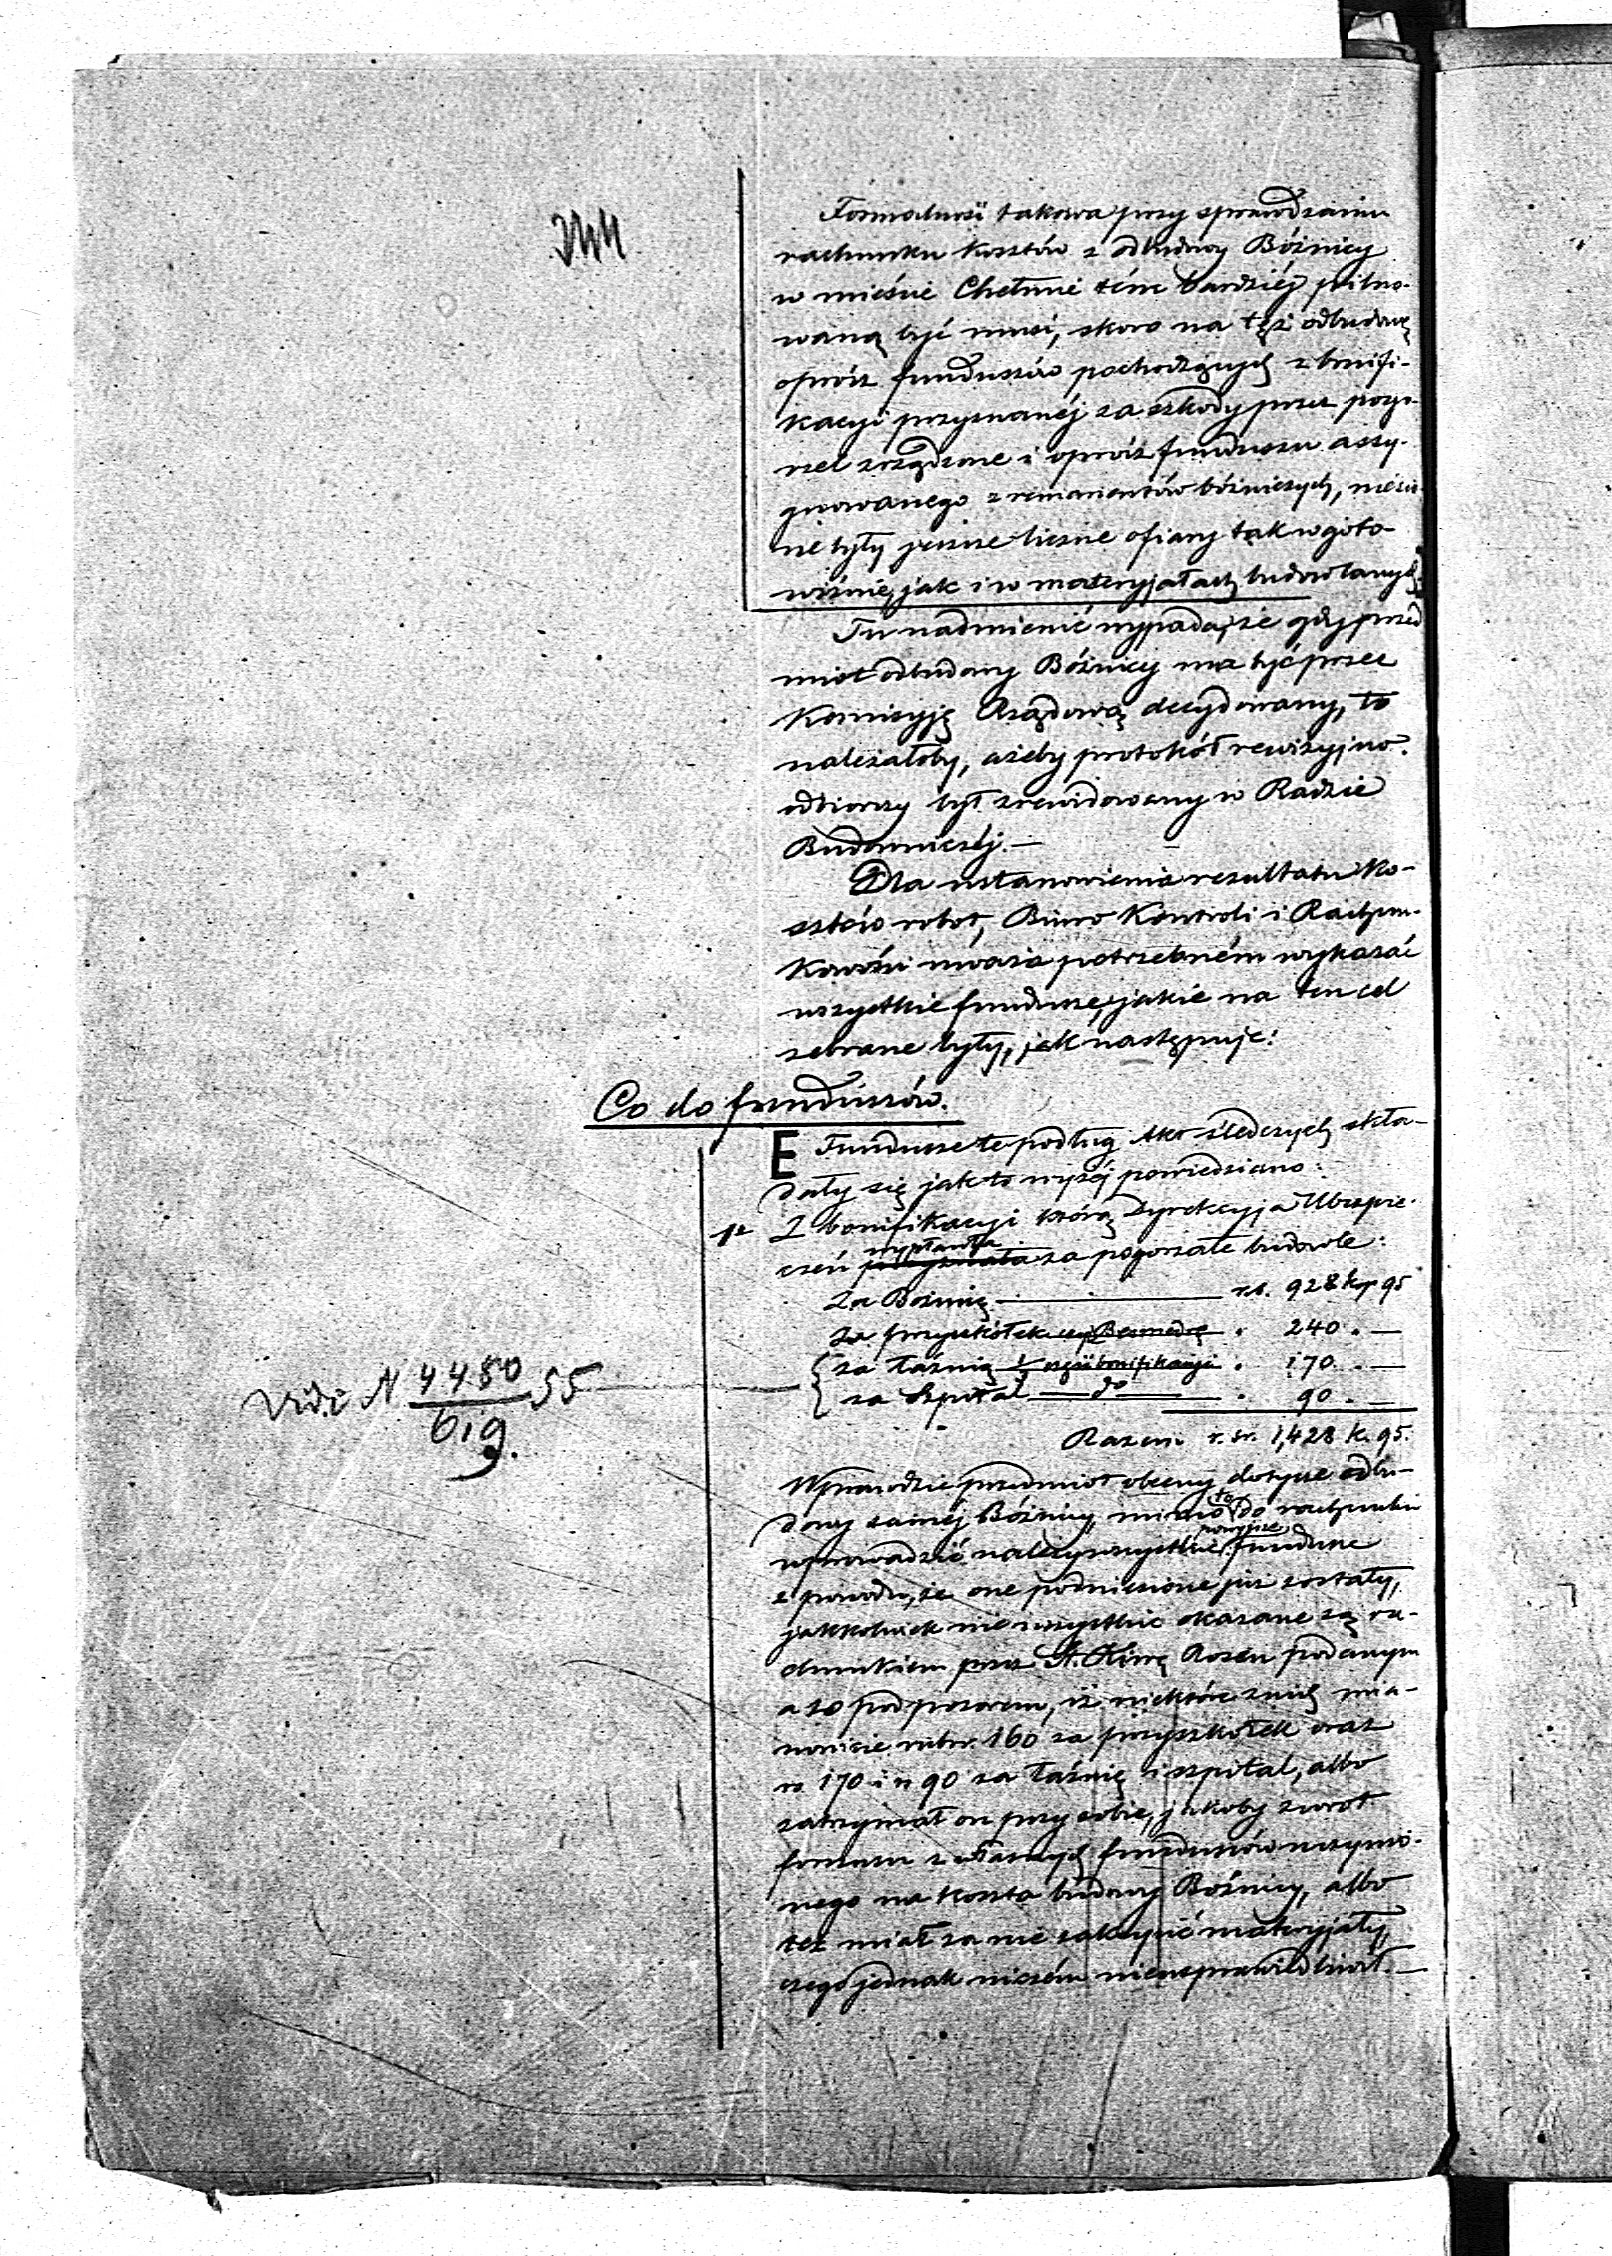 Formalność takowa przy sprawdzaniu
rachunku kosztów z odbudowy Bóżnicy
w mieście Chełmie tém bardziéj pilno-
waną być musi, skoro na tęż odbudowę
oprócz funduszów pochodzących z bonifi-
kacyi przyznanéj za szkody przez pogo-
rzel zrządzone i oprócz funduszu assy-
gnowanego z remanentów bóżniczych,
ne były jeszcze liczne ofiary tak w goto-
wiźnie, jak i w materyjałach budowlanych.
Tu nadmienić wypada, że gdy przed
miot odbudowy Bóżnicy ma być przez
Kommisyję Rządową decydowany, to
należałoby, ażeby protokół rewizyjno-
odbiorczy był zrewidowany w Radzie
Budowniczéj.—
Dla ustanowienia rezultatu ko-
sztów robot, Biuro Kontroli i Rachun-
kowości uważa potrzebném wykazać
wszystkie fundusze, jakie na ten cel
zebrane były, jak następuje:
Co do funduszów.
E Fundusze te podług Akt śledczych skła-
dały się jak to wyżéj powiedziano:
Z bonifikacyi którą Dyrekcyja Ubezpie-
wypłaciła
czeń przyznała za pogorzałe budowle:
Za Bóżnię — rs. 928 kp 95
za przyszkółek " 240 " —
za łaźnię ½ części bonifikacyi " 170 " —
Vide N 4480/619. 55
za Szpital — do — " 90 " —
Razem r. sr. 1,428 k. 95.
Wprawdzie przedmiot obecny dotycze odbu-
dowy saméj Bóżnicy, mimo to do rachunku
powyższe
wprowadzić należy wszystkie fundusze
z powodu, że one podniesione już zostały,
jakkolwiek nie wszystkie okazane są ra-
chunkiem przez St. Rosen podanym
a to pod pozorem, iż niektóre z nich mia-
nowicie rubsr. 160 za przyszkółek oraz
rs 170 i rs 90 za łaźnię i szpital, albo
zatrzymał on przy sobie, jakoby zwrot
forszusu z własnych funduszów uczynio-
nego na koszta budowy Bóżnicy, albo
też miał za nie zakupić materyjały,
czego jednak niczém nieusprawiedliwił.—